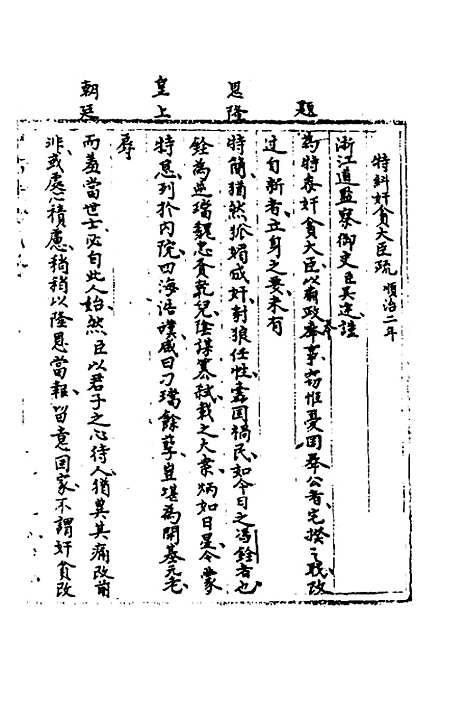 特糾奸貪大臣疏 順治二年
浙江道監察御史臣吳達謹
題為特表奸貪大臣以肅政奉事竊惟憂國奉公者宅揆之職改
過自新者立身之要未有
恩隆特簡猶然狐媚成奸豺狼任性蠹國禍民如今日之馮銓者也
銓為逆璫魏忠賢乾兒陰謀篡弒載之大案炳如日星今蒙
皇上特恩列於內院四海沸騰咸曰刁璫餘孽豈堪為開基元老
辱
朝廷而羞當世士必自此人始然臣以君子之心待人猶冀其痛改前
非或處心積慮稍稍以隆恩當報留意國家不謂奸貪改